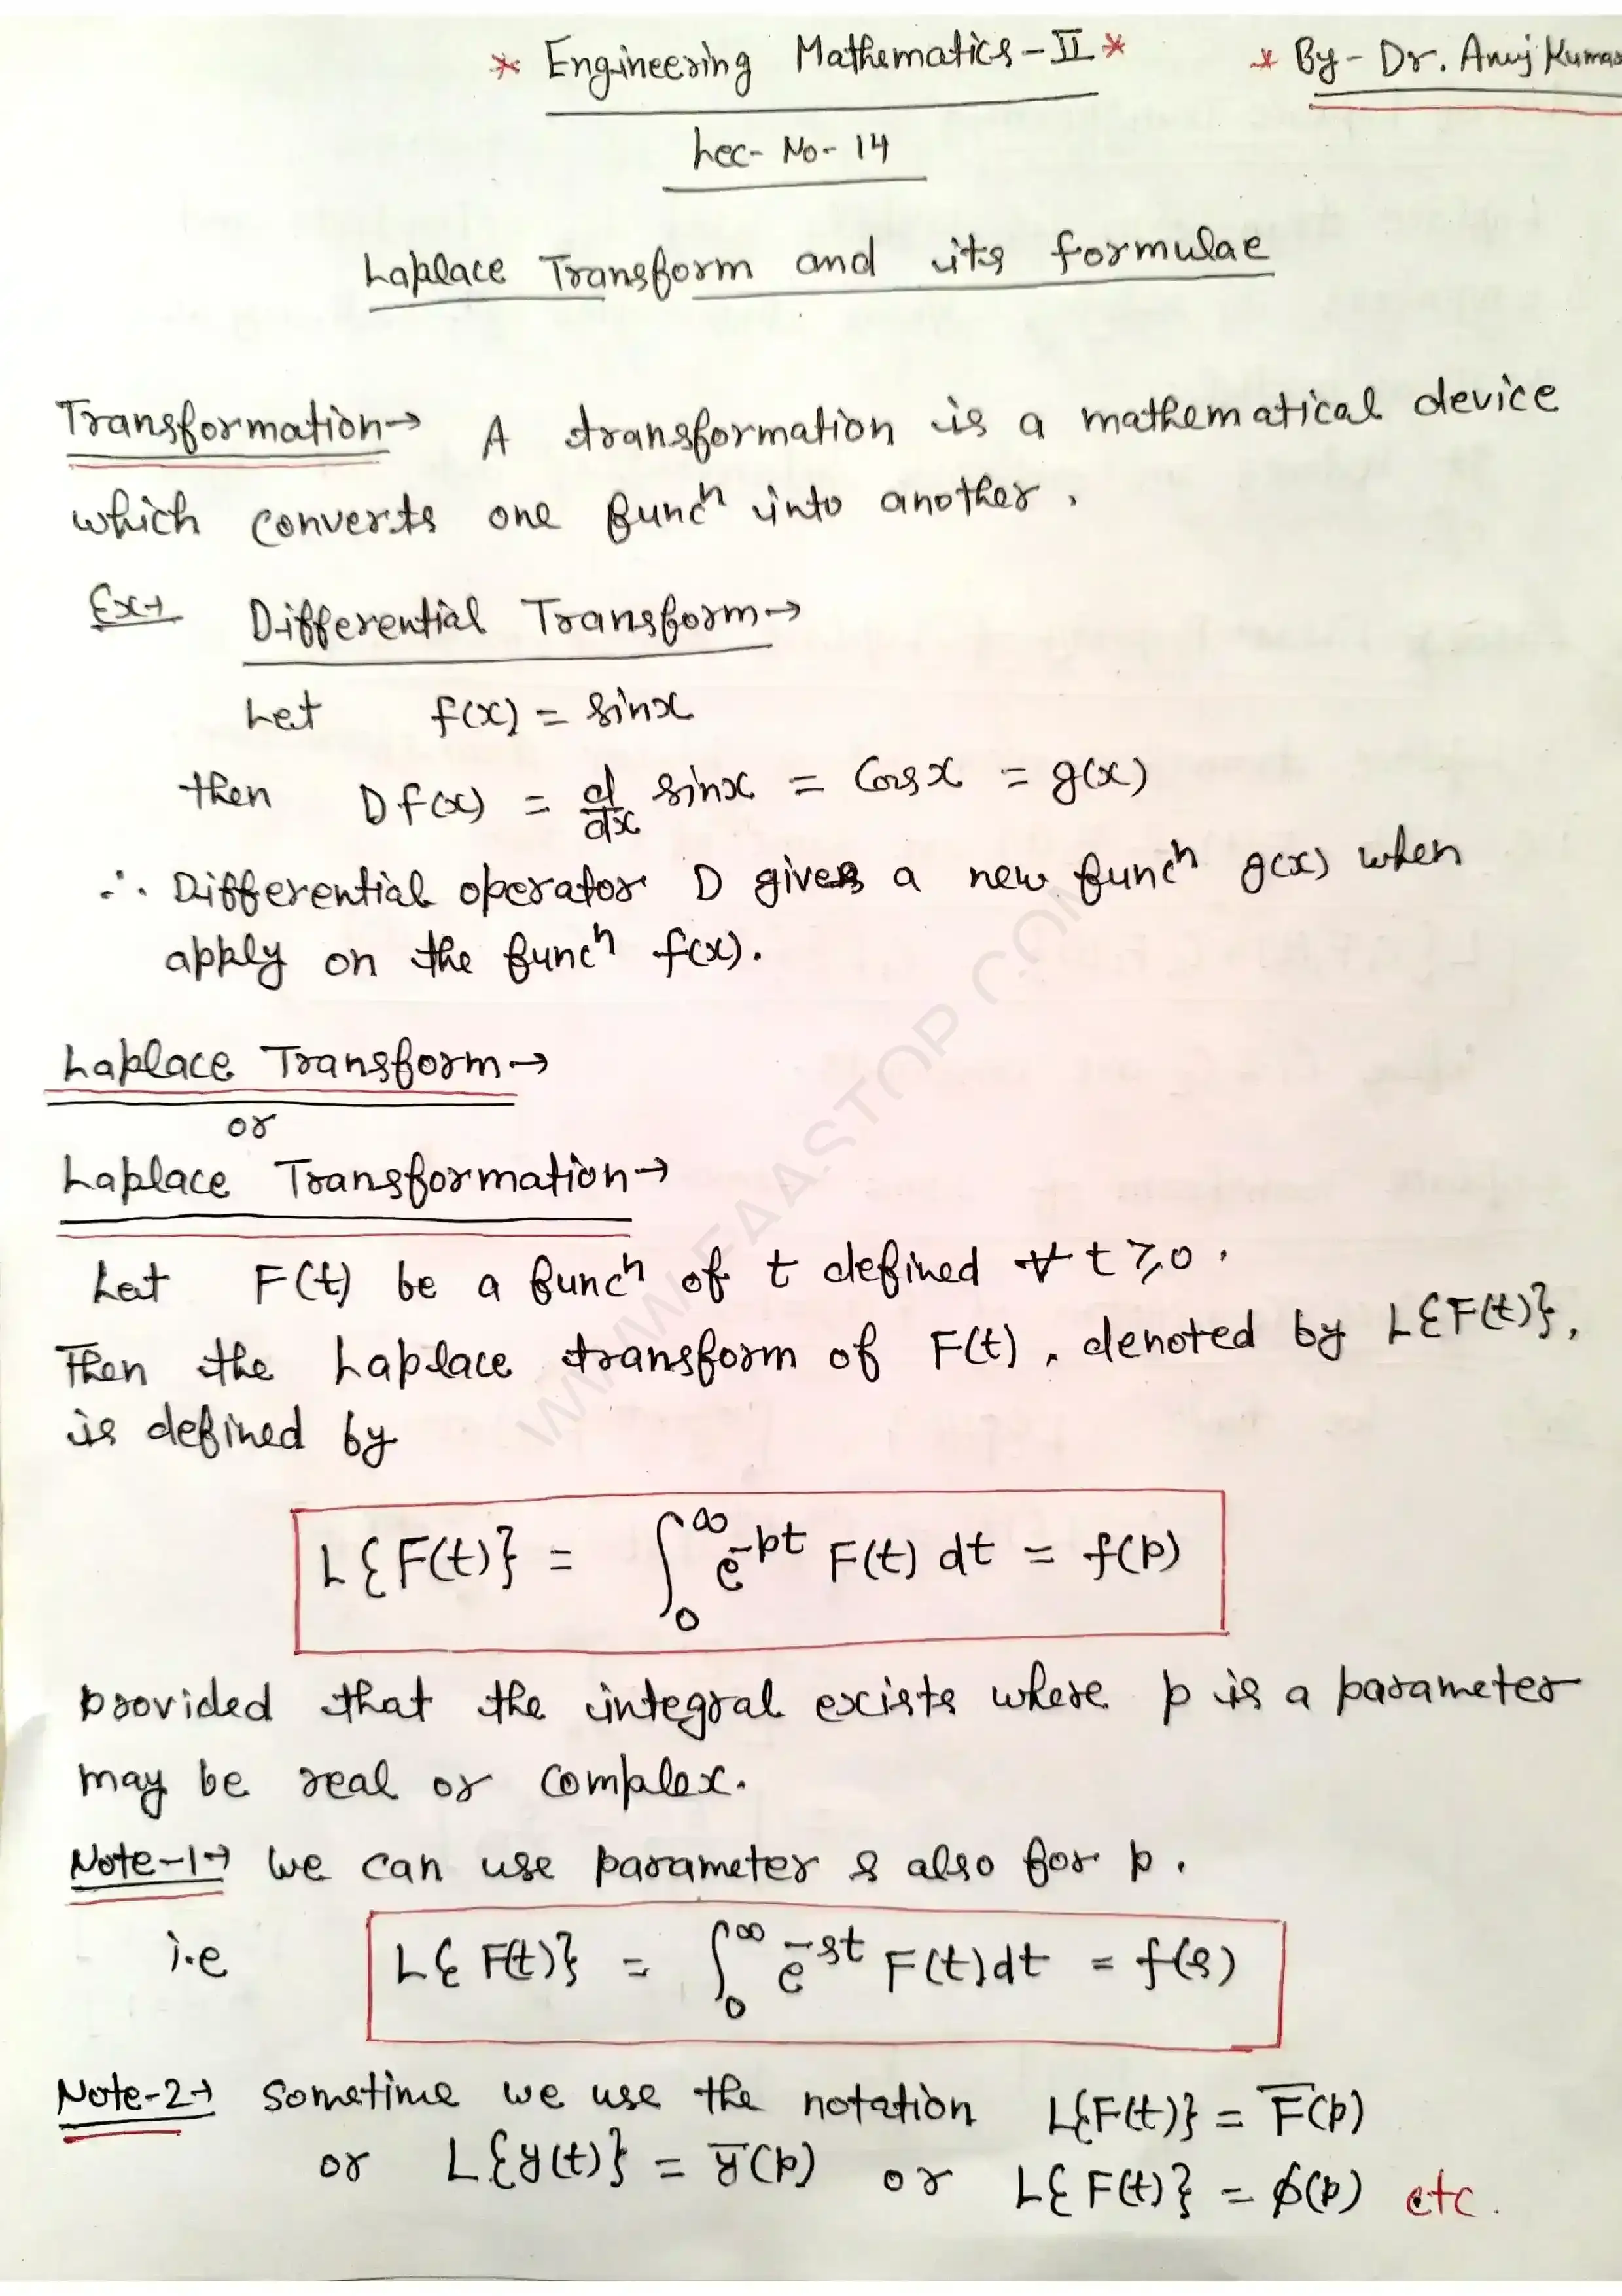 * Engineering Mathematics-II *
* By- Dr. Anuj Kumar
Lec- No- 14
Laplace Transform and its formulae
Transformation→ A transformation is a mathematical device
which converts one funcⁿ into another.
Ex→ Differential Transform→
Let f(x) = sinx
then D f(x) = d/dx sinx = Cosx = g(x)
∴ Differential operator D gives a new funcⁿ g(x) when
apply on the funcⁿ f(x).
Laplace Transform→
or
Laplace Transformation→
Let F(t) be a funcⁿ of t defined ∀ t ≥ 0.
Then the Laplace transform of F(t), denoted by L{F(t)},
is defined by
L{F(t)} = ∫₀^∞ e^-pt F(t) dt = f(p)
provided that the integral exists where p is a parameter
may be real or complex.
Note-1→ We can use parameter s also for p.
i.e L{F(t)} = ∫₀^∞ e^-st F(t)dt = f(s)
Note-2→ Sometime we use the notation L{F(t)} = F̅(p)
or L{y(t)} = y̅(p) or L{F(t)} = ϕ(p) etc.
WWW.FAASTOP.COM